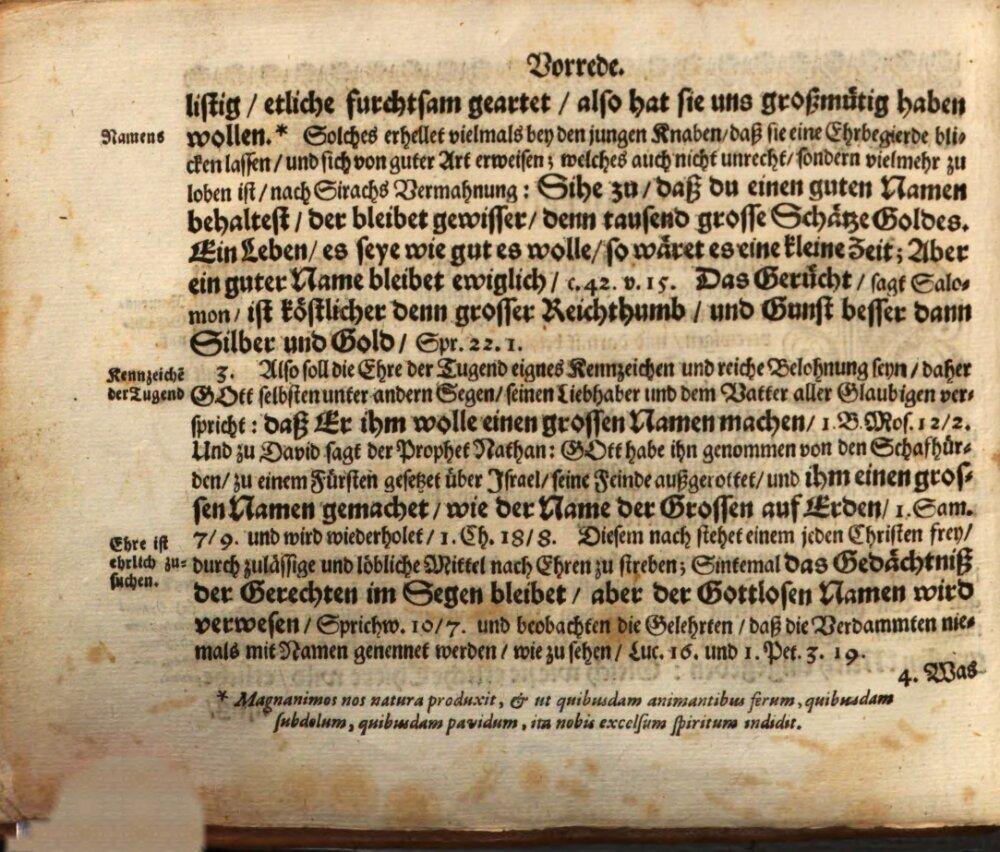 Vorrede.
listig / etliche furchtsam geartet / also hat sie uns großmütig haben
Namens
wollen.* Solches erhellet vielmals bey den jungen Knaben/ daß sie eine Ehrbegierde bli-
cken lassen / und sich von guter Art erweisen; welches auch nicht unrecht/ sondern vielmehr zu
loben ist / nach Sirachs Vermahnung: Sihe zu / daß du einen guten Namen
behaltest / der bleibet gewisser / denn tausend grosse Schätze Goldes.
Ein Leben / es seye wie gut es wolle / so wäret es eine kleine Zeit; Aber
ein guter Name bleibet ewiglich / c. 42. v. 15. Das Gerücht / sagt Salo-
mon / ist köstlicher denn grosser Reichthumb / und Gunst besser dann
Silber und Gold / Spr. 22. 1.
Kennzeichē
der Tugend
3. Also soll die Ehre der Tugend eignes Kennzeichen und reiche Belohnung seyn / daher
GOtt selbsten unter andern Segen / seinen Liebhaber und dem Vatter aller Glaubigen ver-
spricht: daß Er ihm wolle einen grossen Namen machen / 1. B. Mos. 12/2.
Und zu David sagt der Prophet Nathan: GOtt habe ihn genommen von den Schafhür-
den / zu einem Fürsten gesetzet über Israel / seine Feinde außgerottet / und ihm einen gros-
sen Namen gemachet / wie der Name der Grossen auf Erden / 1. Sam.
Ehre ist
ehrlich zu-
suchen.
7/9. und wird wiederholet / 1. Ch. 18/8. Diesem nach stehet einem jeden Christen frey /
durch zulässige und löbliche Mittel nach Ehren zu streben; Sintemal das Gedächtniß
der Gerechten im Segen bleibet / aber der Gottlosen Namen wird
verwesen / Sprichw. 10/7. und beobachten die Gelehrten / daß die Verdammten nie-
mals mit Namen genennet werden / wie zu sehen / Luc. 16. und 1. Pet. 3. 19.
4. Was
* Magnanimos nos natura produxit, & ut quibusdam animantibus ferum, quibusdam
subdolum, quibusdam pavidum, ita nobis excelsum spiritum indidit.